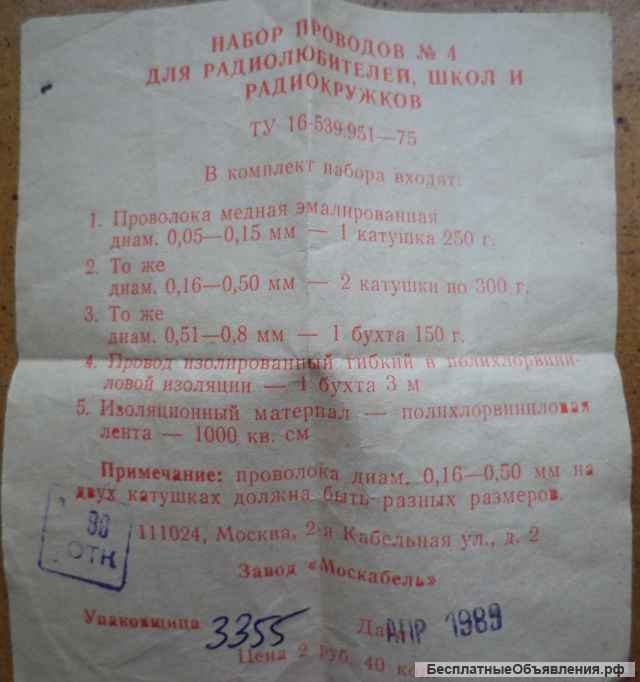 НАБОР ПРОВОДОВ № 4
ДЛЯ РАДИОЛЮБИТЕЛЕЙ, ШКОЛ И
РАДИОКРУЖКОВ
ТУ 16-539.951—75
В комплект набора входят:
1. Проволока медная эмалированная
диам. 0,05—0,15 мм — 1 катушка 250 г.
2. То же
диам. 0,16—0,50 мм — 2 катушки по 300 г.
3. То же
диам. 0,51—0,8 мм — 1 бухта 150 г.
4. Провод изолированный гибкий в полихлорвини-
ловой изоляции — 1 бухта 3 м
5. Изоляционный материал — полихлорвиниловая
лента — 1000 кв. см
Примечание: проволока диам. 0,16—0,50 мм на
двух катушках должна быть разных размеров.
111024, Москва, 2-я Кабельная ул., д. 2
ОТК
Завод «Москабель»
Упаковщица 3355 Да АПР 1989
Цена 2 руб. 40 ко
БесплатныеОбъявления.рф